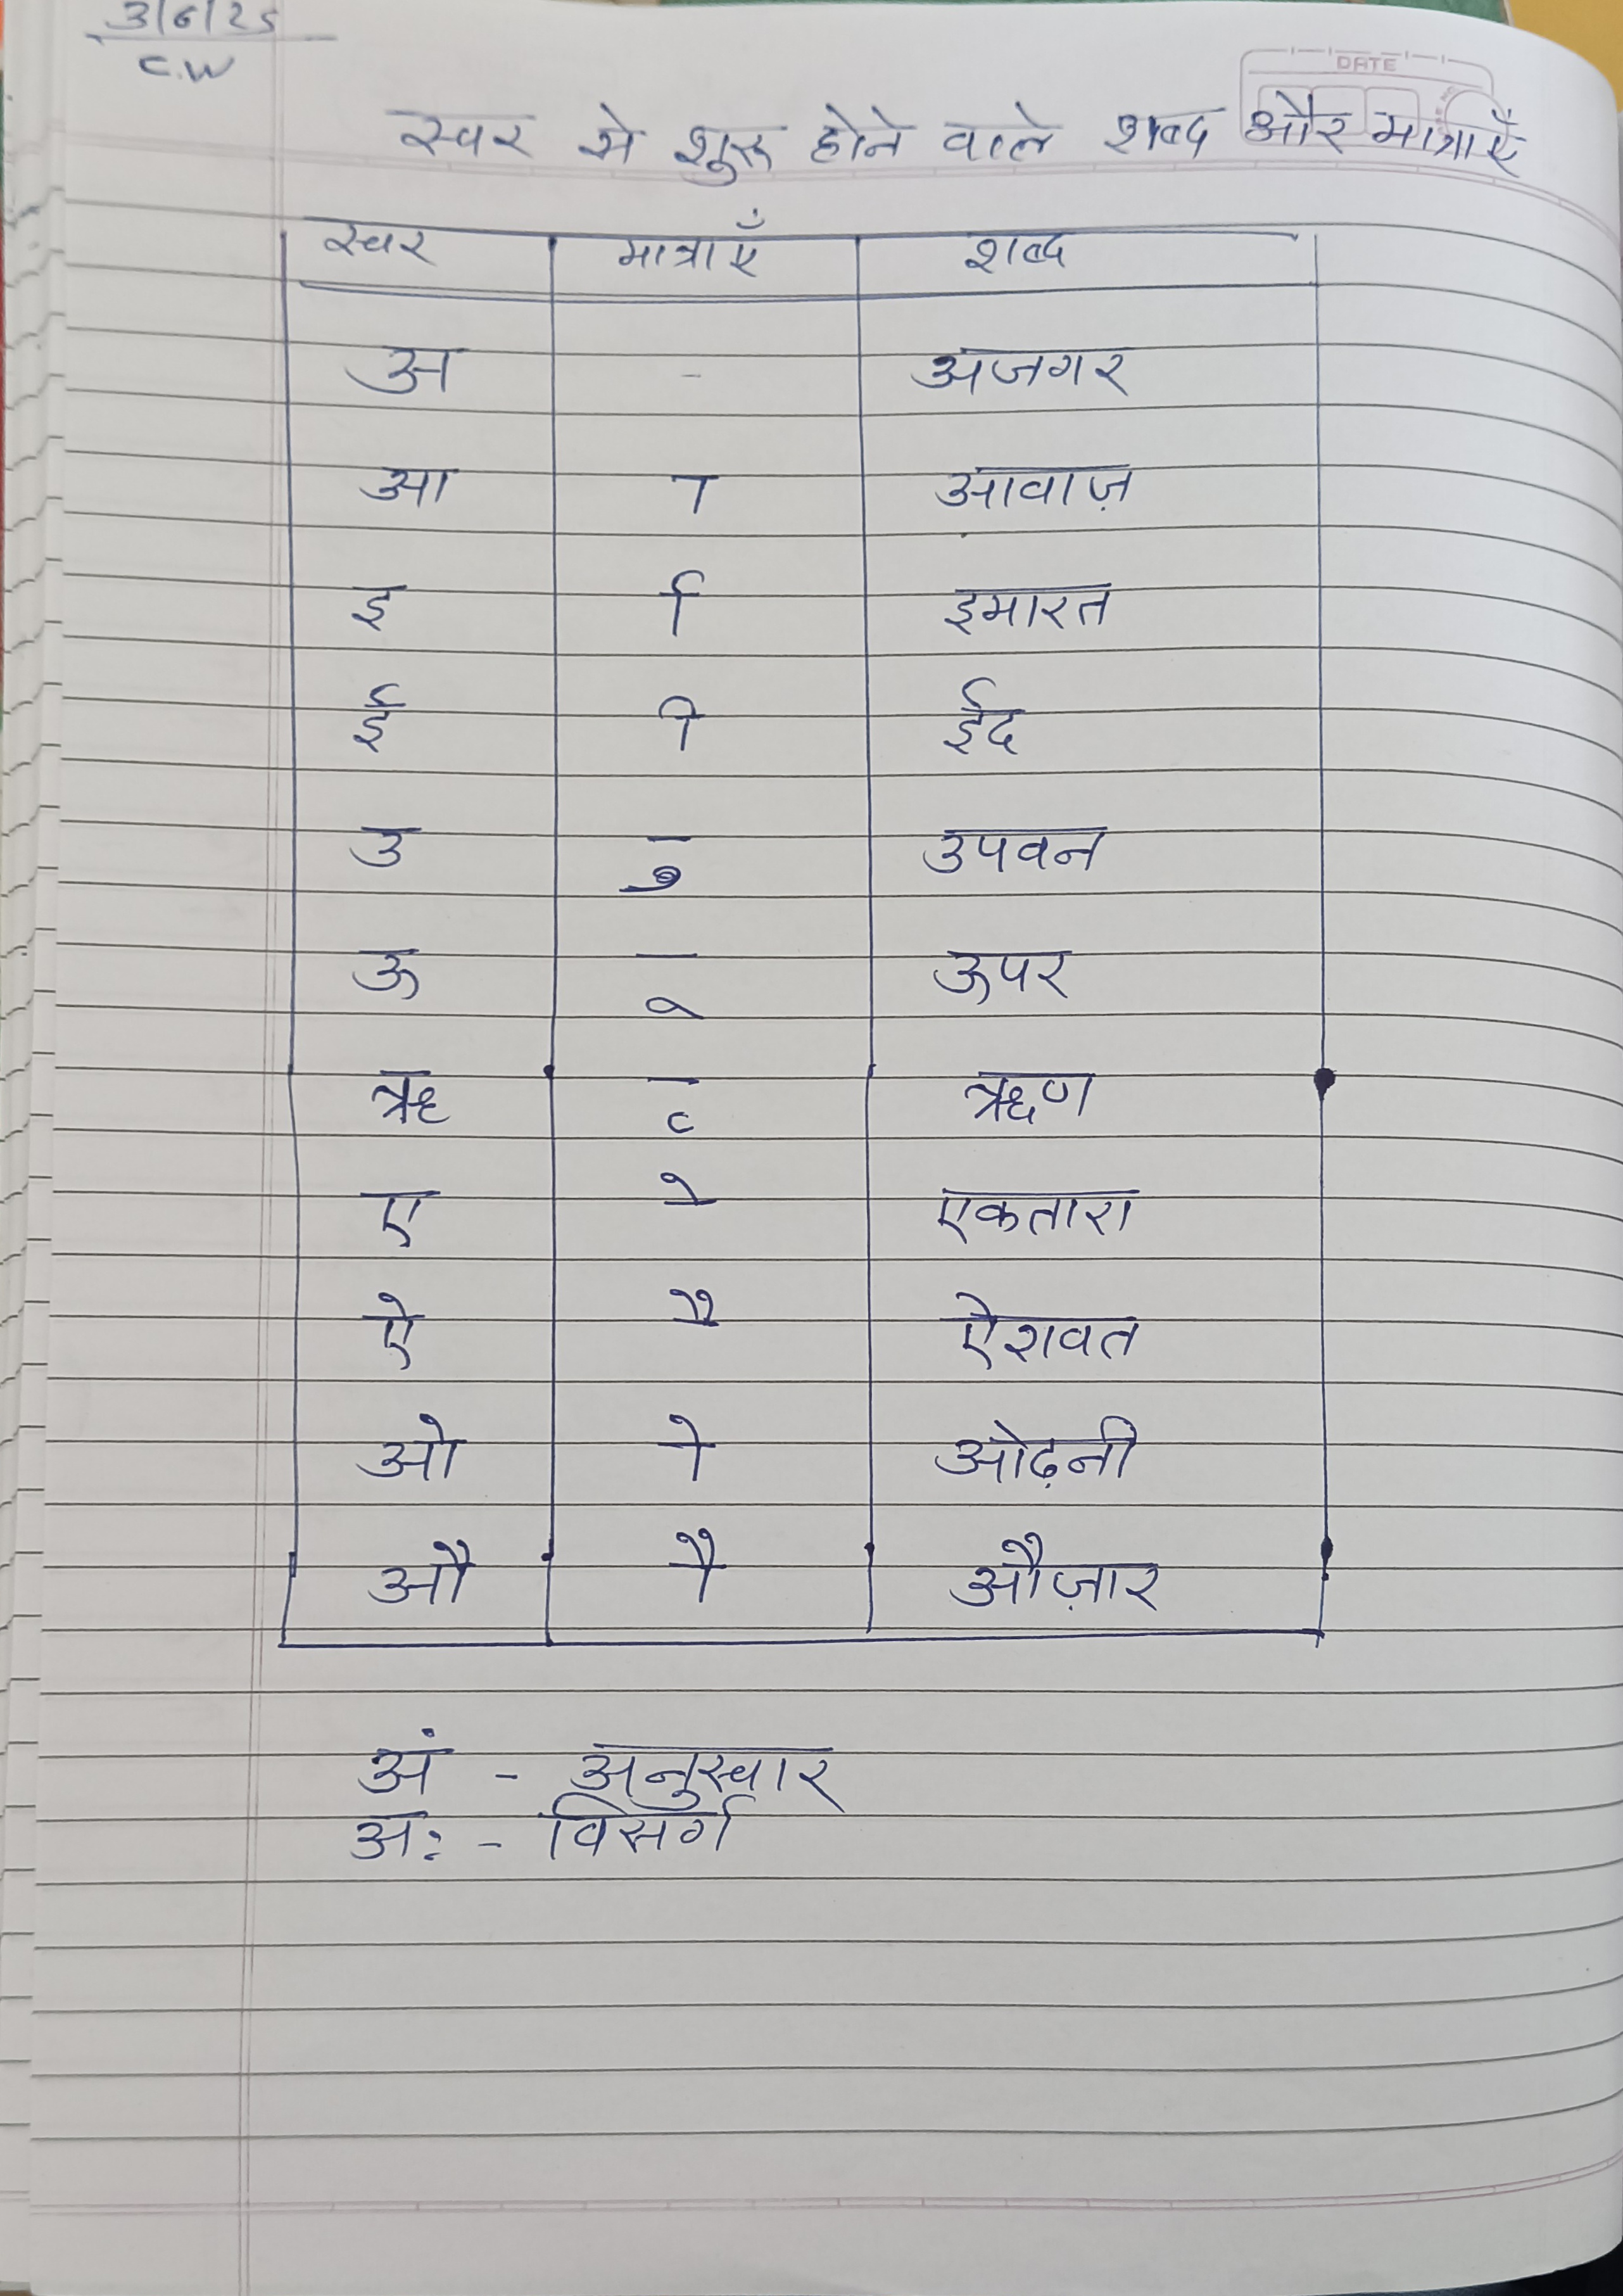 3/6/25
C.W
DATE
स्वर से शुरू होने वाले शब्द और मात्राएँ
स्वर मात्राएँ शब्द
अ - अजगर
आ ा आवाज़
इ ि इमारत
ई ी ईद
उ ु उपवन
ऊ ू ऊपर
ऋ ृ ऋण
ए े एकतारा
ऐ ै ऐरावत
ओ ो ओढ़नी
औ ौ औज़ार
अं - अनुस्वार
अः - विसर्ग